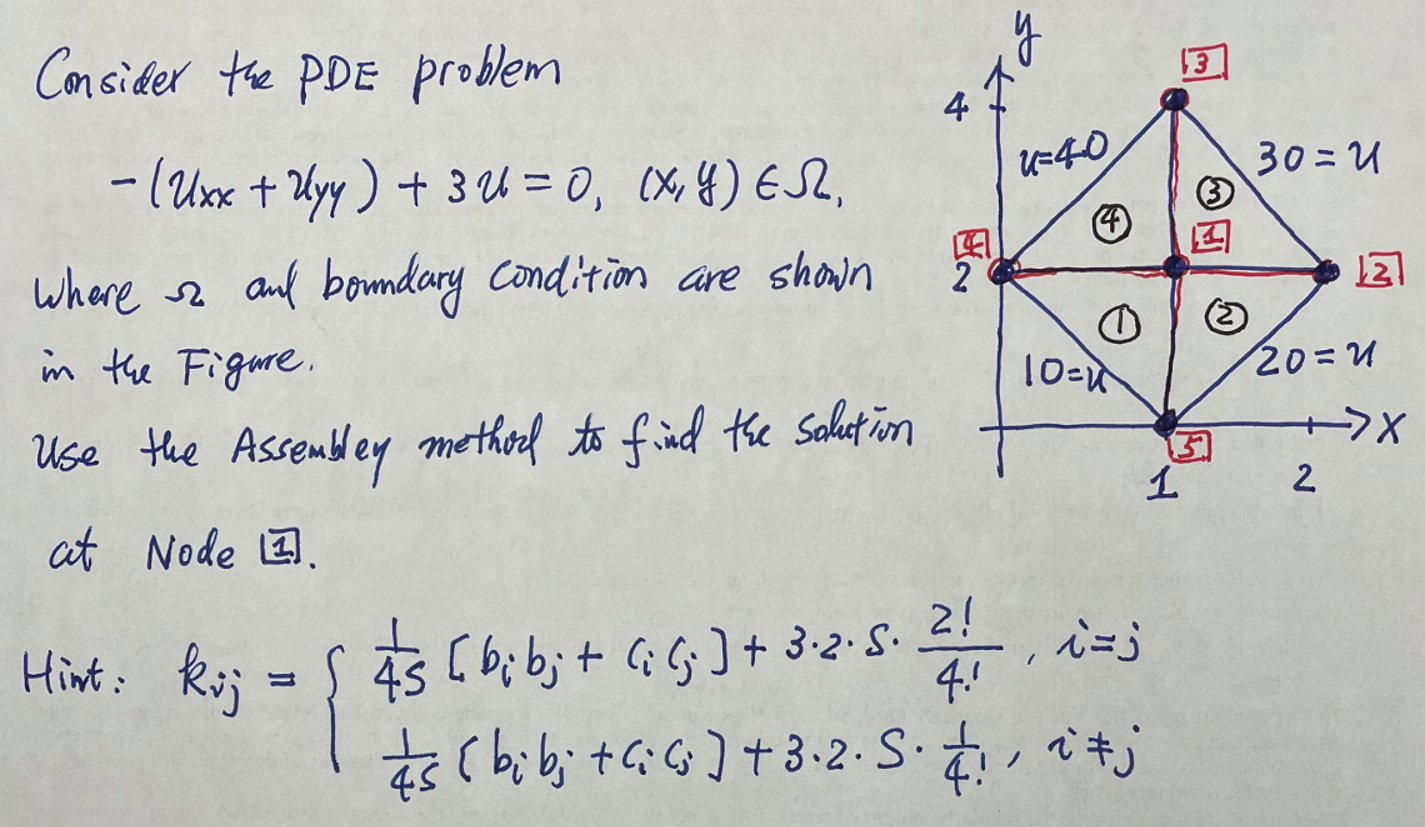 Consider the PDE problem
-(Uxx + Uyy) + 3U = 0, (x, y) ∈ Ω,
where Ω and boundary condition are shown
in the Figure.
Use the Assembley method to find the solution
at Node 1.
Hint: kij = { 1/4S [bi bj + ci cj] + 3·2·S· 2!/4!, i=j
1/4S [bi bj + ci cj] + 3·2·S· 1/4!, i≠j
y
3
4
u=40
30=u
③
④
1
4
2
2
①
②
10=u
20=u
x
5
1
2